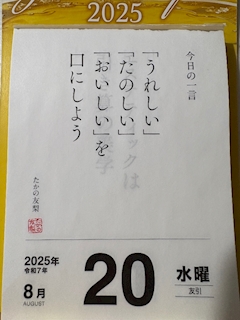 2025
今日の一言
「うれしい」
「たのしい」
「おいしい」を
口にしよう
たかの友梨
2025年
令和7年
8月
AUGUST
20
水曜
友引